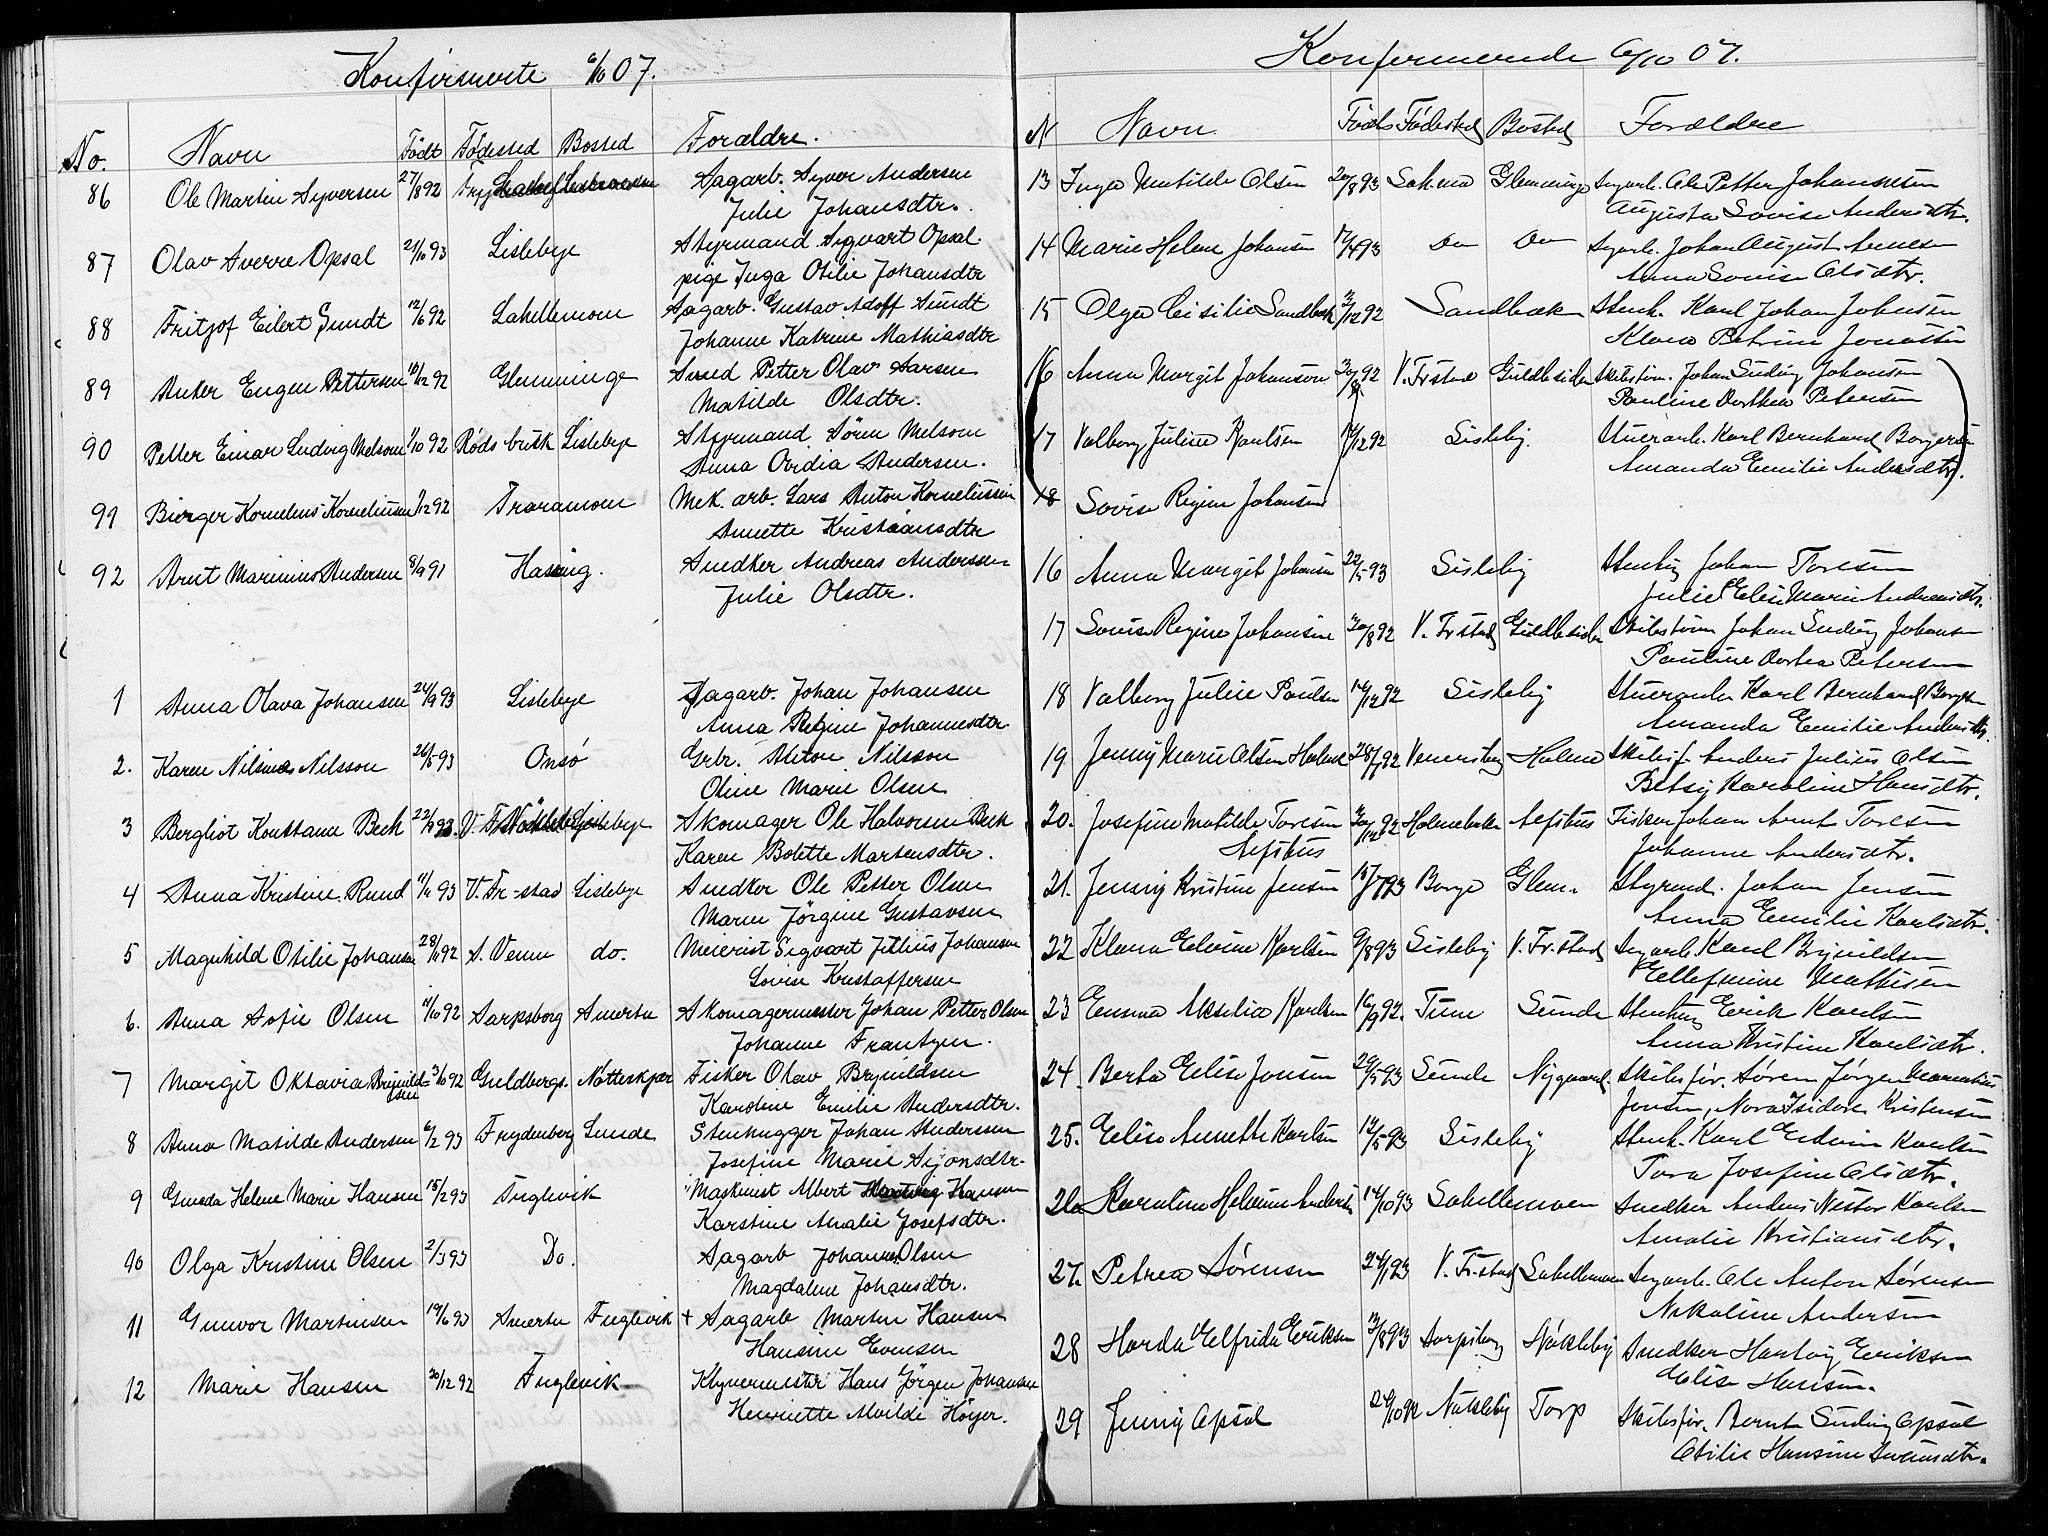 Konfirmerte 6/10 07.
No. Navn Født Fødested Bosted Foraldre.
86 Ole Martin Syversen 27/8 92 Sagarb. Syver Andersen
Julie Johansdtr.
87 Olav Sverre Opsal 21/10 93 Lislebye Styrmand Sigvart Opsal.
pige Inga Otilie Johansdtr
88 Fritjof Eilert Sundt 12/6 92 Lahellemoen Sagarb. Gustav Adolf Sundt
Johanne Katrine Mathiasdtr
89 Anker Eugen Pettersen 10/12 92 Glemminge Smed Petter Olav Larsen
Matilde Olsdtr.
90 Petter Einar Ludvig Melsom 1/10 92 Røds brusk Lislebye Styrmand Sören Melsom
Anna Ovidia Andersen.
91 Birger Kornelius Korneliussen 1/12 92 Traramoen Mek. arb. Lars Anton Korneliussen
Annette Kristiansdtr
92 Arnt Marinius Andersen 8/9 91 Hassing. Snedker Andreas Anderssen
Julie Olsdtr.
1 Anna Olava Johansen 24/9 93 Lislebye Sagarb. Johan Johansen
Anna Regine Johannesdtr
2. Karen Nilsine Nilsson 26/5 93 Onsö Grbr. Anton Nilsson
Oline Marie Olsen
3 Bergliot Konstanse Beck 22/9 93 V. Fr. Lislebye Skomager Ole Halvorsen Beck
Karen Bolette Martensdtr.
4 Anna Kristine Rund 11/11 93 V. Fr-stad Lislebye Snedker Ole Petter Olsen
Maren Jörgine Gustavsen
5 Magnhild Otilie Johansen 28/11 92 S. Venn do. Meierist Sigvart Julius Johansen
Lovise Kristoffersen
6. Anna Sofie Olsen 11/10 92 Sarpsborg Smertu Skomagermester Johan Petter Olsen
Johanne Frantzen.
7 Margit Oktavia Brynildsen 3/10 92 Guldbergs. Nötteskjær Fisker Olav Brynildsen
Karoline Emilie Andersdtr.
8 Anna Matilde Andersen 6/2 93 Frydenberg Lunde Stenhugger Johan Anderssen
Josefine Marie Sijonsdtr.
9 Gunda Helene Marie Hansen 15/2 93 Fuglevik Maskinist Albert Hansen
Karstine Amalie Josefsdtr.
10 Olga Kristine Olsen 2/3 93 Do. Sagarb Johannes Olsen
Magdalene Johansdtr.
11 Gunvor Martinsen 19/6 93 Smertu Fuglevik + Sagarb Martin Hansen
Hansine Evensen
12 Marie Hansen 30/12 92 Fuglevik Klyvermester Hans Jörgen Johansen
Henriette Alvilde Höyer.
Konfirmerede 6/10 07.
N Navn Födt Födested Bosted Forældre
13 Inga Matilde Olsen 20/8 93 Glemminge Sagarb. Ole Petter Johannesen
Augusta Lovise Andersdtr.
14 Marie Helene Johansen 17/4 93 Do Do Sagarb. Johan August Arnesen
Anna Lovise Olsdtr.
15 Olga Cisilie Sandbæk 3/12 92 Sandbæk Stenh. Karl Johan Johnsen
Klara Petrine Jonassen
16 Anna Margit Johansen 30/8 92 V. Frstad Guldbsiden Skibstöm. Johan Ludvig Johansen
Pauline Dorthea Petersen
17 Valborg Juline Karlsen 14/12 92 Lisleby. Stuerarb. Karl Bernhard Borgersen
Amanda Emilie Andersdtr.
18 Lovise Regine Johansen
16 Anna Margit Johansen 22/5 93 Lisleby Stenhug Johan Toresen
Julie Elise Marie Andreasdtr.
17 Lovise Regine Johansen 30/8 92 V. Frstad Guldbsiden Skibstöm Johan Ludvig Johansen
Pauline Dortea Petersen
18 Valborg Julie Paulsen 14/12 92 Lisleby Stuerarb Karl Bernhard Borgersen
Amanda Emilie Andersdtr.
19 Jenny Marie Olsen Holene 28/7 92 Venersborg Holene Skibsf. Anders Julius Olsen
Betsy Karoline Hansdtr.
20. Josefine Matilde Toresen 30/12 92 Holmebakken Alfskus Fisker Johan Arnt Toresen
Alfskus Johanne Andersdtr.
21. Jenny Kristine Jensen 15/7 93 Borge Glem. Styrmd. Johan Jensen
Anna Emilie Karlsdtr.
22 Klara Elvine Karlsen 9/8 93 Lisleby V. Fr.stad Sagarb. Karl Brynildsen
Ellefine Mathisen
23 Emma Aksilia Karlsen 16/9 92. Tune Lunde Stenhug Erik Karlsen
Anna Kristine Karlsdtr.
24. Berta Elise Jonsen 20/5 93 Lunde Nygaard. Skibsför. Sören Jörgen
Jonsen, Nora Isidora Kristensen
25. Elise Annette Karlsen 12/5 93 Lisleby Stenh. Karl Edvin Karlsen
Tora Josefine Olsdtr.
26 Karoline Helmine Andersen 14/10 93 Lahellemoen Snedker Anders Nestor Karlsen
Amalie Kristiansdtr.
27. Petrea Sörensen 24/1 93 V. Fr.stad Lahellemoen Sagarb. Ole Anton Sörensen
Nikoline Andersen
28 Harda Elfrida Eriksen 13/8 93 Sarpsborg Nökleby Snedker Hartvig Eriksen
Elise Hansen.
29 Jenny Opsal 24/10 92 Nökleby Torp Skibsför. Bernt Ludvig Opsal
Otilie Hansine Svensdtr.